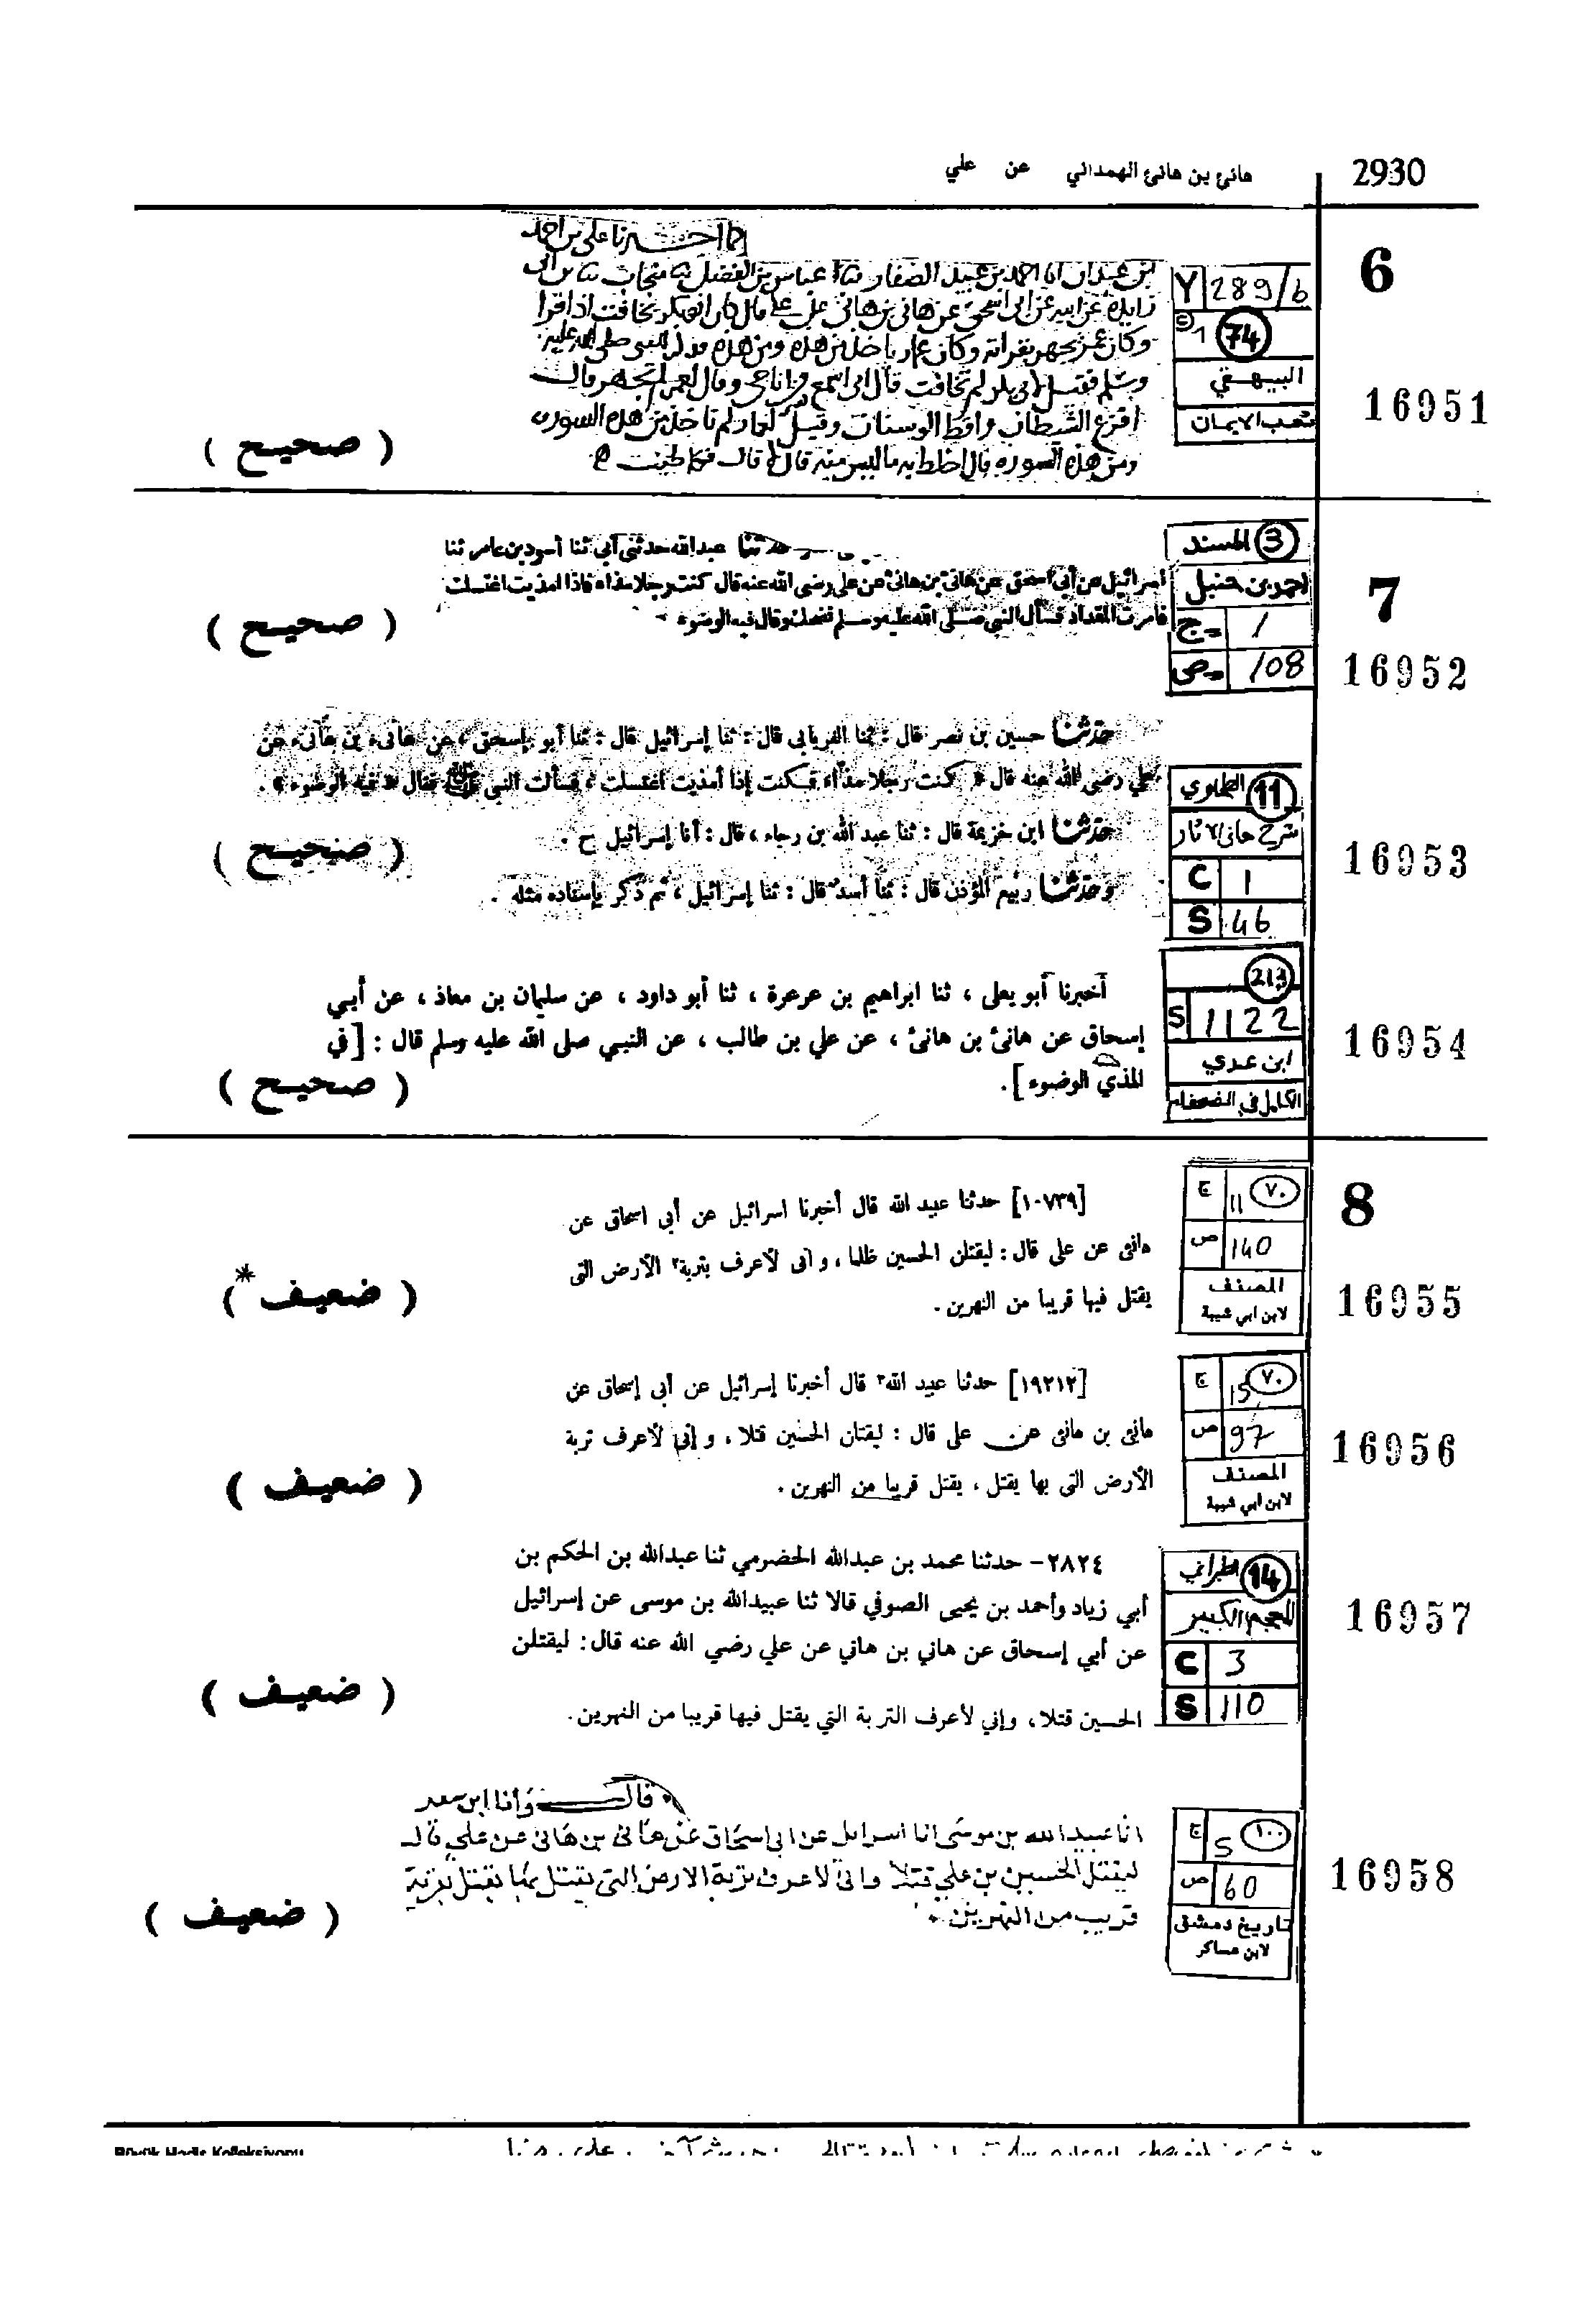 2930
هانئ بن هانئ الهمداني عن علي
6
اخبرنا علي بن احمد
ابن عبدان انا احمد بن عبيد الصفار ثنا عباس بن الفضل ثنا منجاب ثنا بن ابى
زايدة عن ابيه عن ابى اسحق عن هانى بن هانى عن على قال كان ابو بكر يخافت اذا قرا
وكان عمر يجهر بقراته وكان عمار ياخذ من هذه ومن هذه فذكر للنبى صلى الله عليه
وسلم فقيل لابى بكر لم تخافت قال انى اسمع من اناجى وقال لعمر لم تجهر قال
افزع الشيطان واوقظ الوسنان وقيل لعمار لم تاخذ من هذه السورة
ومن هذه السورة قال اخلط به ما ليس منه قال لا قال فكله طيب
( صحيح )
Y 289/b
1 74
البيهقي
شعب الايمان
16951
7
حدثنا عبد الله حدثنى أبى ثنا أسود بن عامر ثنا
اسرائيل عن أبى اسحق عن هانئ بن هانئ عن على رضى الله عنه قال كنت رجلا مذاء فاذا أمذيت اغتسلت
فامرت المقداد فسأل النبى صلى الله عليه وسلم فضحك وقال فيه الوضوء
( صحيح )
3 المسند
احمد بن حنبل
ج 1
ص 108
16952
حدثنا حسين بن نصر قال : ثنا الفريابى قال : ثنا إسرائيل قال : ثنا أبو إسحق ، عن هانىء بن هانىء عن
على رضى الله عنه قال « كنت رجلا مذاء فكنت إذا أمذيت اغتسلت ، فسألت النبى ﷺ فقال « فيه الوضوء » .
حدثنا ابن خزيمة قال : ثنا عبد الله بن رجاء ، قال : أنا إسرائيل ح .
وحدثنا ربيع المؤذن قال : ثنا أسد قال : ثنا إسرائيل ، ثم ذكر بإسناده مثله .
( صحيح )
11 الطحاوي
شرح معاني الآثار
C 1
S 46
16953
أخبرنا أبو يعلى ، ثنا ابراهيم بن عرعرة ، ثنا أبو داود ، عن سليمان بن معاذ ، عن أبي
إسحاق عن هانئ بن هانئ ، عن علي بن طالب ، عن النبي صلى الله عليه وسلم قال : [ في
المذي الوضوء ] .
( صحيح )
213
S 1122
ابن عدي
الكامل في الضعفاء
16954
8
[١٠٧٣٩] حدثنا عبيد الله قال أخبرنا اسرائيل عن أبي اسحاق عن
هانئ عن على قال : ليقتلن الحسين ظلما ، و انى لأعرف بتربة٢ الأرض التى
يقتل فيها قريبا من النهرين .
( ضعيف* )
٧٠ 11 ج
140 ص
المصنف
لابن ابي شيبة
16955
[١٩٢١٢] حدثنا عبيد الله٣ قال أخبرنا إسرائيل عن أبى إسحاق عن
هانئ بن هانئ عن على قال : ليقتلن الحسين قتلا ، و إني لأعرف تربة
الأرض التى بها يقتل ، يقتل قريبا من النهرين .
( ضعيف )
٧٠ 15 ج
97 ص
المصنف
لابن ابي شيبة
16956
٢٨٢٤ - حدثنا محمد بن عبدالله الحضرمي ثنا عبدالله بن الحكم بن
أبي زياد وأحمد بن يحيى الصوفي قالا ثنا عبيدالله بن موسى عن إسرائيل
عن أبي إسحاق عن هاني بن هاني عن علي رضي الله عنه قال : ليقتلن
الحسين قتلا ، وإني لأعرف التربة التي يقتل فيها قريبا من النهرين .
( ضعيف )
14 الطبراني
المعجم الكبير
C 3
S 110
16957
قال وأنا ابن سعد
انا عبيد الله بن موسى انا اسرايل عن ابي اسحاق عن هانى بن هانى عن علي قال
ليقتل الحسين بن علي قتلا وانى لاعرف تربة الارض التى يقتل بها يقتل بقرية
قريب من النهرين .
( ضعيف )
١٠٠ 5 ج
60 ص
تاريخ دمشق
لابن عساكر
16958
Büyük Hadis Kolleksiyonu